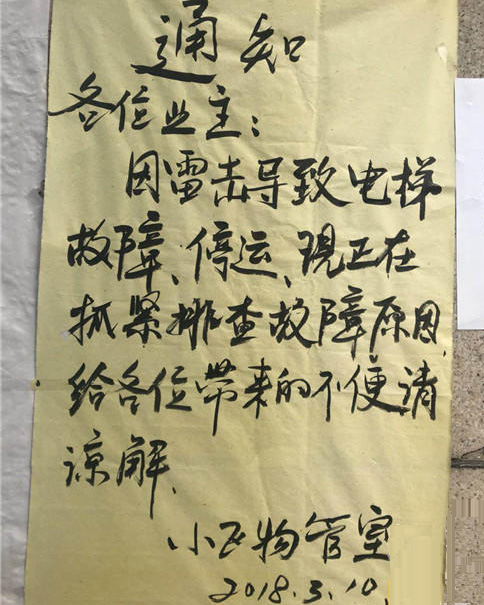 通知
各位业主：
因雷击导致电梯
故障、停运、现正在
抓紧排查故障原因,
给各位带来的不便请
谅解、
小区物管室
2018.3.10